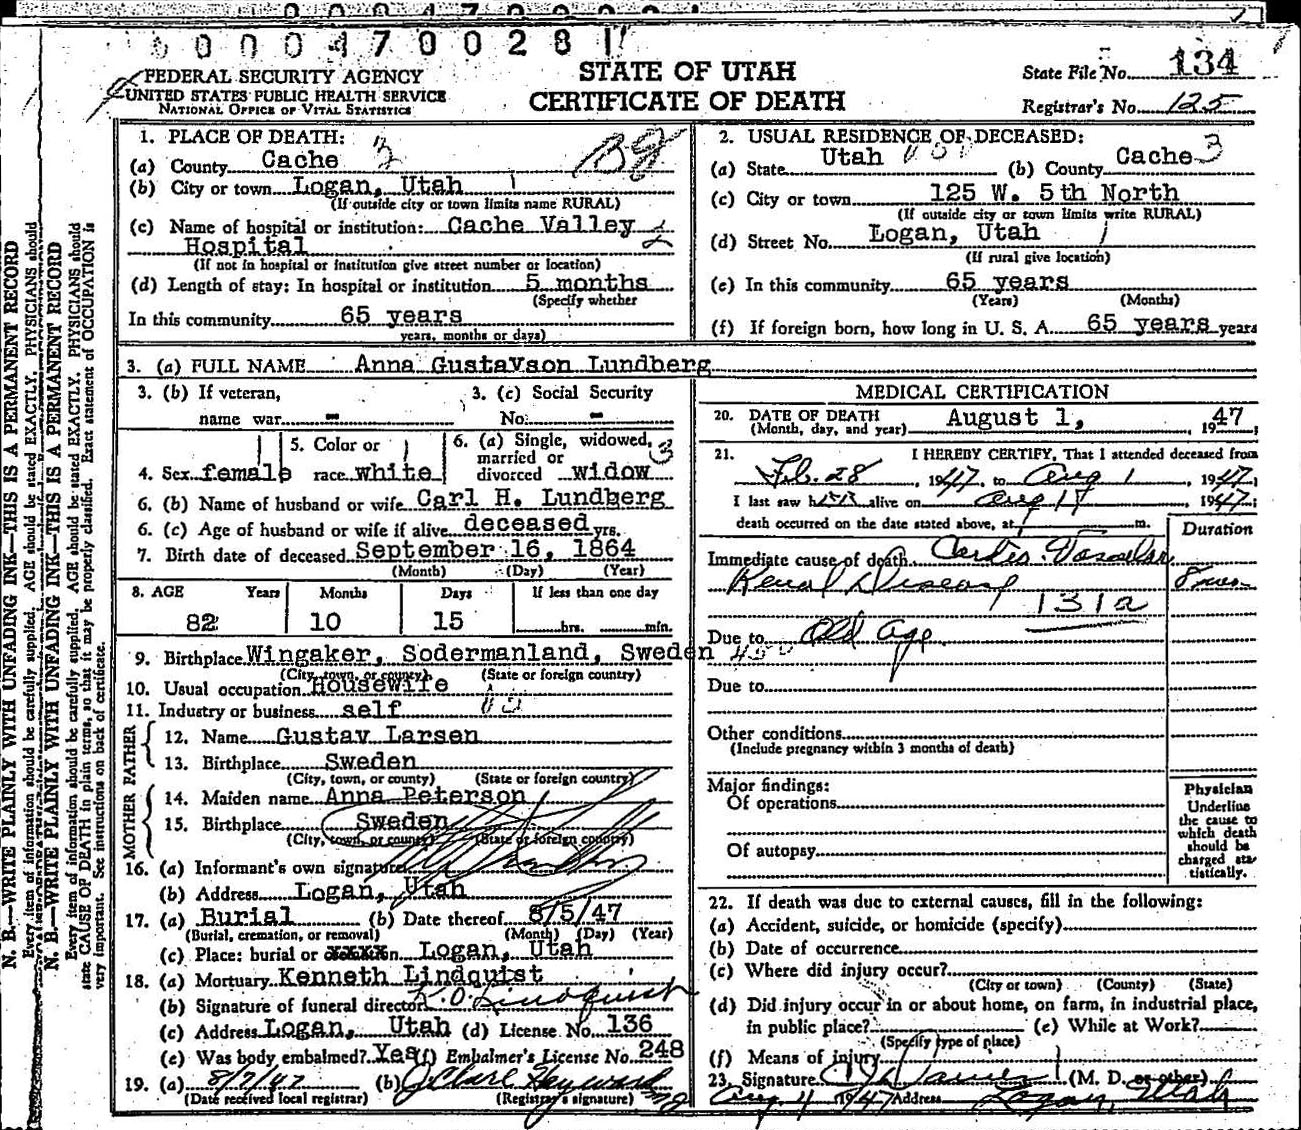 0 0 0 4 7 0 0 2 8 1
FEDERAL SECURITY AGENCY
UNITED STATES PUBLIC HEALTH SERVICE
NATIONAL OFFICE OF VITAL STATISTICS
STATE OF UTAH
CERTIFICATE OF DEATH
State File No. 134
Registrar's No. 125
1. PLACE OF DEATH: 3 Bg
(a) County Cache
(b) City or town Logan, Utah
(If outside city or town limits name RURAL)
(c) Name of hospital or institution: Cache Valley
Hospital
(If not in hospital or institution give street number or location)
(d) Length of stay: In hospital or institution 5 months
(Specify whether
In this community 65 years
years, months or days)
2. USUAL RESIDENCE OF DECEASED:
(a) State Utah (b) County Cache 3
(c) City or town 125 W. 5th North
(If outside city or town limits write RURAL)
(d) Street No. Logan, Utah
(If rural give location)
(e) In this community 65 years
(Years) (Months)
(f) If foreign born, how long in U. S. A. 65 years years
3. (a) FULL NAME Anna Gustavson Lundberg
3. (b) If veteran,
name war -
3. (c) Social Security
No. -
4. Sex female
5. Color or
race white
6. (a) Single, widowed, 3
married or
divorced widow
6. (b) Name of husband or wife Carl H. Lundberg
6. (c) Age of husband or wife if alive deceased yrs.
7. Birth date of deceased September 16, 1864
(Month) (Day) (Year)
8. AGE Years Months Days If less than one day
82 10 15 hrs. min.
9. Birthplace Wingaker, Sodermanland, Sweden
(City, town, or county) (State or foreign country)
10. Usual occupation Housewife
11. Industry or business self
FATHER
12. Name Gustav Larsen
13. Birthplace Sweden
(City, town, or county) (State or foreign country)
MOTHER
14. Maiden name Anna Peterson
15. Birthplace Sweden
(City, town, or county) (State or foreign country)
16. (a) Informant's own signature
(b) Address Logan, Utah
17. (a) Burial (b) Date thereof 8/5/47
(Burial, cremation, or removal) (Month) (Day) (Year)
(c) Place: burial or xxxxx Logan, Utah
18. (a) Mortuary Kenneth Lindquist
(b) Signature of funeral director K. O. Lindquist
(c) Address Logan, Utah (d) License No. 136
(e) Was body embalmed? Yes (f) Embalmer's License No. 248
19. (a) 8/7/47 (b) Clare Hayward
(Date received local registrar) (Registrar's signature)
MEDICAL CERTIFICATION
20. DATE OF DEATH August 1, 1947;
(Month, day, and year)
21. I HEREBY CERTIFY, That I attended deceased from
Feb. 28, 1947, to Aug 1, 1947;
I last saw her alive on Aug 1, 1947;
death occurred on the date stated above, at m.
Duration
Immediate cause of death Cardio. Vascular
Renal Disease 8 mos
131a
Due to Old Age
450
Due to
Other conditions
(Include pregnancy within 3 months of death)
Major findings:
Of operations
Of autopsy
Physician
Underline
the cause to
which death
should be
charged sta-
tistically.
22. If death was due to external causes, fill in the following:
(a) Accident, suicide, or homicide (specify)
(b) Date of occurrence
(c) Where did injury occur?
(City or town) (County) (State)
(d) Did injury occur in or about home, on farm, in industrial place,
in public place? (e) While at Work?
(Specify type of place)
(f) Means of injury
23. Signature (M. D. or other)
Aug 4 1947 Address Logan, Utah
N. B.—WRITE PLAINLY WITH UNFADING INK—THIS IS A PERMANENT RECORD
Every item of information should be carefully supplied. AGE should be stated EXACTLY. PHYSICIANS should
N. B.—WRITE PLAINLY WITH UNFADING INK—THIS IS A PERMANENT RECORD
Every item of information should be carefully supplied. AGE should be stated EXACTLY. PHYSICIANS should
state CAUSE OF DEATH in plain terms, so that it may be properly classified. Exact statement of OCCUPATION is
very important. See instructions on back of certificate.